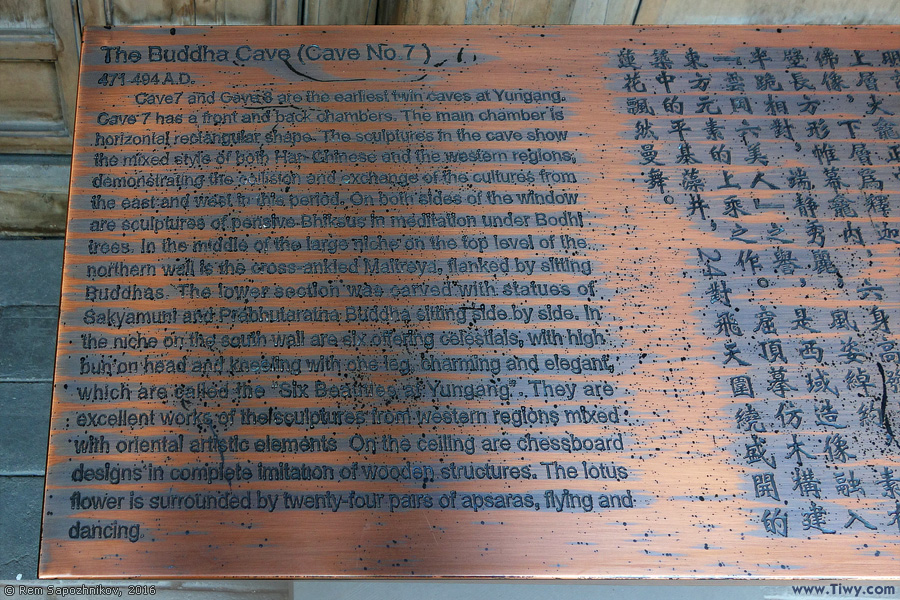 The Buddha Cave (Cave No.7)
471-494 A.D.
Cave7 and Cave8 are the earliest twin caves at Yungang.
Cave 7 has a front and back chambers. The main chamber is
horizontal rectangular shape. The sculptures in the cave show
the mixed style of both Han-Chinese and the western regions,
demonstrating the collision and exchange of the cultures from
the east and west in this period. On both sides of the window
are sculptures of pensive Bhiksus in meditation under Bodhi
trees. In the middle of the large niche on the top level of the
northern wall is the cross-ankled Maitreya, flanked by sitting
Buddhas. The lower section was carved with statues of
Sakyamuni and Prabhutaratna Buddha sitting side by side. In
the niche on the south wall are six offering celestials, with high
bun on head and kneeling with one leg, charming and elegant,
which are called the "Six Beauties of Yungang". They are
excellent works of the sculptures from western regions mixed
with oriental artistic elements. On the ceiling are chessboard
designs in complete imitation of wooden structures. The lotus
flower is surrounded by twenty-four pairs of apsaras, flying and
dancing.
上層大龕
佛像。下層為釋迦
壁長方形帷幕龕內，六身高
半跪相對，端靜秀麗，風姿綽
"雲岡六美人"之譽，是西域造像融入
東方元素的上乘之作。窟頂摹仿木構建
築中的平棊藻井，24對飛天圍繞盛開的
蓮花飄然曼舞。
© Rem Sapozhnikov, 2016
www.Tiwy.com